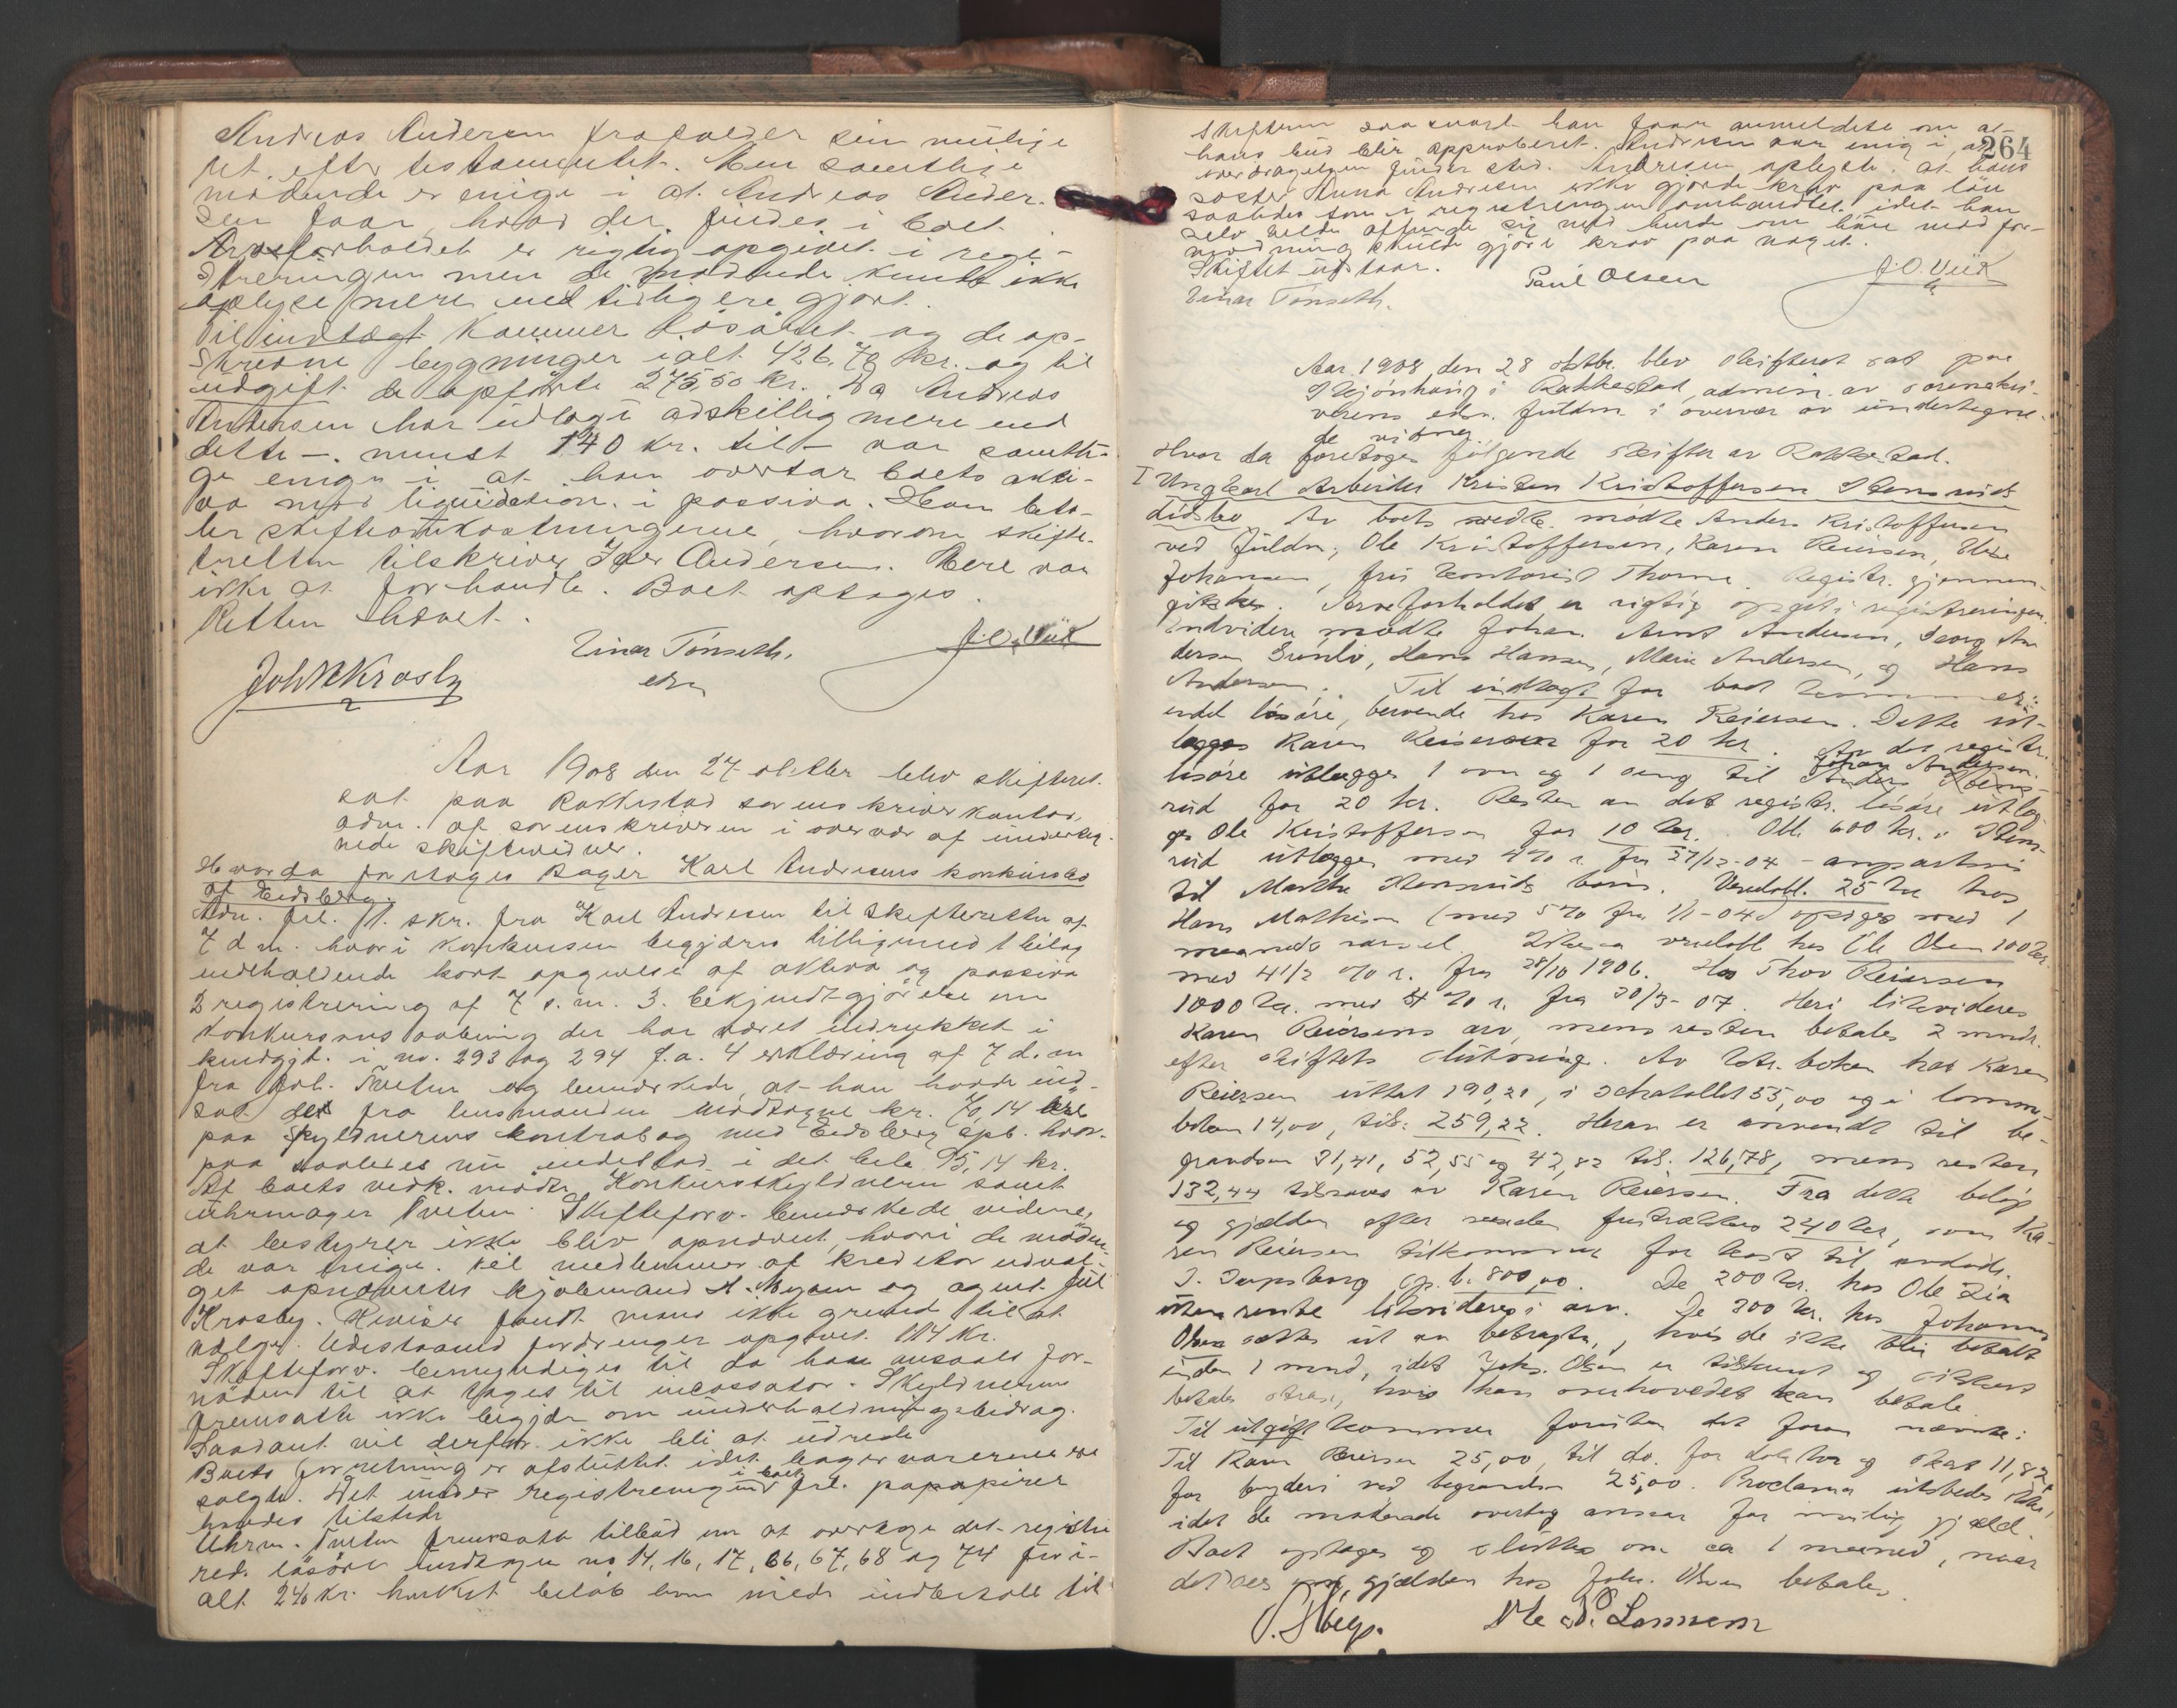 Andreas Andersen frafalder sin mulige
ret efter testamentet. Men samtlige
mødende er enige i at Andreas Ander-
sen faar, hvad der findes i boet.
Arveforholdet er rigtig opgivet i regi-
streringen men de mødende kunde ikke
oplyse mere end tidligere gjort.
Til indtægt kommer løsøret og de op-
skrevne bygninger ialt 426,70 kr. og til
udgift de opførte 275,50 kr. Da Andreas
Andersen har udlagt adskillig mere end
dette – mindst 140 kr. til – var samtli-
ge enige i at han overtar boets akti-
va mod liquidation i passiva. Han beta-
ler skifteomkostningerne, hvorom skifte-
retten tilskriver Iver Andersen. Mere var
ikke at forhandle. Boet optages.
Retten hævet.
Einar Tønseth. J.O. Viik
Joh N Krosby edm
Aar 1908 den 27 oktober blev skifteret
sat paa Rakkestad sorenskriverkontor,
adm. af sorenskriveren i overvær af underteg-
nede skiftevidner.
Hvorda foretoges Bager Karl Andresens konkursbo
af Eidsberg.
Adm. frl. 1. skr. fra Karl Andresen til skifteretten af
7 d.m. hvori konkursen begjæres tilligemed 1 bilag
indholdende kort opgivelse af aktiva og passiva
2 registrering af 7 s.m. 3. bekjendtgjørelse om
konkursens aabning der har været indrykket i
kundgjt. i no. 293 og 294 f.a. 4 erklæring af 7 d.m
fra Joh. Tveten og bemærkede, at han havde ind-
sat det fra lensmanden modtagne kr. 70,14 øre
paa skyldnerens kontrabog med Eidsberg spb. hvor-
paa saaledes nu indestod i det hele 95,14 kr.
Af boets vedk. mødte Konkursskyldneren samt
uhrmager Tveten. Skifteforv. bemærkede videre,
at bestyrer ikke blev opnævnt, hvori de møden-
de var enige. Til medlemmer af kreditorudval-
get opnævntes kjøbmand A. Mysen og agent Jul
Krosby. Revisor fandt man ikke grund til at
vælge. Udestaaende fordringer opgivet 114 kr.
Skifteforv. bemyndiges til da han ansaaes for-
nøden til at tages til incassator. Skyldneren
fremsatte ikke begjær om underholdningsbidrag.
Saadant vil derfor ikke bli at udrede
Boets forretning er afsluttet idet bagervarerne er
solgte. Det under registreringen i boet frl. papapirer
havdes tilstede
Uhrm. Tveten fremsatte tilbud om at overtage det registre
rede løsøre undtagen no 14, 16, 17, 66, 67, 68 og 74 for i-
alt 240 kr. hvilket beløb han vilde indbetale til
264
Skifteretten saa snart han faar anmeldelse om at
hans bud blir approberet. Andresen var enig i at
overdragelsen finder sted. Andresen oplyste at hans
søster Anna Andresen ikke gjorde krav paa løn
saaledes som i registreringen omhandlet idet han
selv vilde affinde sig med hende om hun mod for-
modning skulde gjøre krav paa noget.
Skiftet udstaar.
Einar Tønseth. Paul Olsen J.O. Viik
Aar 1908 den 28 oktbr. blev skifteret sat paa
Skjønhaug i Rakkestad, admin. av sorenskri-
verens edm. fuldm. i overvær av undertegne-
de vidner
Hvor da foretoges følgende skifter av Rakkestad.
I Ungkarl Arbeider Kristen Kristoffersen Stensruds
dødsbo Av boets vedk. mødte Anders Kristoffersen
ved fuldm., Ole Kristoffersen, Karen Reiersen,
Johansen, frk kontorist Thorne. Registr. gjennem-
gikkes. Arveforholdet er rigtig opgit i registreringen.
Endvidere mødte Johan Arnt Andersen, Georg An
dersen Grønli, Hans Hansen, Marie Andersen, og Hans
Andersen. Til indtægt for boet kommer:
endel løsøre, beroende hos Karen Reiersen. Dette ut-
lægges Karen Reiersen for 20 kr. Av det registr.
løsøre utlægges 1 ovn og 1 seng til Johan Andersen
rud for 20 kr. Resten av det registr. løsøre utlæg-
ges Ole Kristoffersen for 10 kr. Obl. 600 kr. i Stens-
rud utlægges med 4 % r. fra 27/12-04 – anpartsvis
til Marthe Stensruds børn. Vexelobl. 25 kr hos
Hans Mathisen (med 5 % fra 1/1-04) opsiges med 1
maaneds varsel. Likesaa vexelobl. hos Ole Olsen 100 kr.
med 4 1/2 % r. fra 28/10 1906. Hos Thov Reiersen
1000 kr. med 4 % r. fra 30/3-07. Heri likvideres
Karen Reiersens arv, mens resten betales 2 mndr.
efter skiftets slutning. Av ktr. boken har Karen
Reiersen uttat 190,21, i schatollet 55,00 og i lomme-
boken 14,00, tils: 259,22. Herav er anvendt til be-
gravelsen 31,41, 52,55 og 42,82 tils. 126,78, mens resten
132,44 tilsvares av Karen Reiersen. Fra dette beløp
og gjælden efter nedenfor fratrækkes 240 kr, som Ka-
ren Reiersen tilkommer for kost til avdøde.
I Sarpsborg sp. b. 800,00. De 200 kr. hos Ole Lia
uten rente likvideres i arv. De 300 kr. hos Johannes
Olsen sættes ut av betragtn., hvis de ikke blir betalt
inden 1 mnd, idet Johs. Olsen er tilskrevet og sikkert
betaler straks, hvis han overhovedet kan betale.
Til utgift kommer foruten det foran nævnte:
Til Karen Reiersen 25,00, til do. for doktor og skat 11,82
for bryderi ved begravelsen 25,00. Proclama utstedes ikke,
idet de møtende overtog ansvar for mulig gjæld.
Boet optages og sluttes om ca 1 maaned, naar
det sees om gjælden hos Johs. Olsen betales
Ole P. Lannem